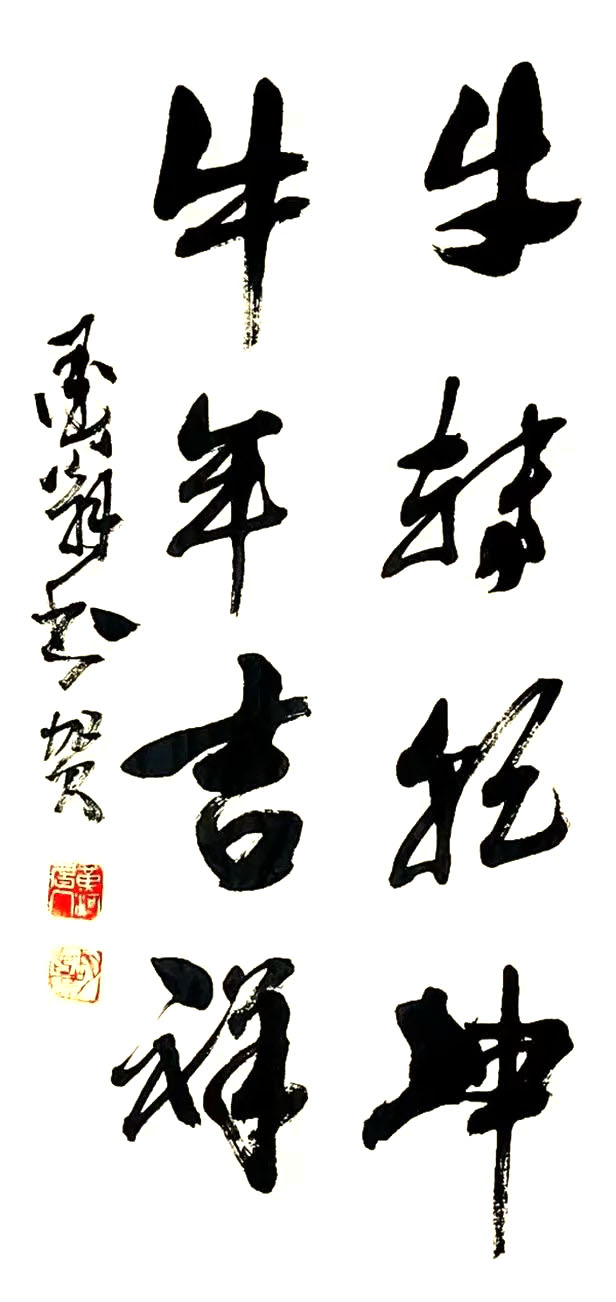 牛转乾坤
牛年吉祥
书贺